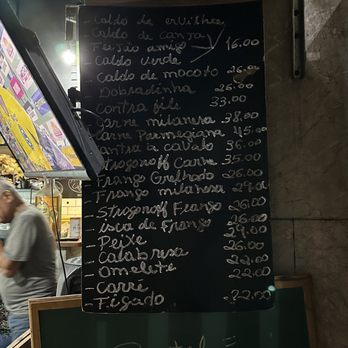 - Caldo de ervilhas
- Caldo de canja
- Feijão amigo 16.00
- Caldo verde
- Caldo de mocoto 26.00
- Dobradinha 26.00
- Contra filé 33.00
- Carne milanesa 38.00
- Carne Parmegiana 45.00
- Contra a cavalo 36.00
- Strogonoff Carne 35.00
- Frango Grelhado 26.00
- Frango milanesa 29.00
- Strogonoff Frango 26.00
- isca de Frango 26.00
- Peixe 29.00
- Calabresa 26.00
- Omelete 22.00
- Carré 22.00
- Figado 22.00